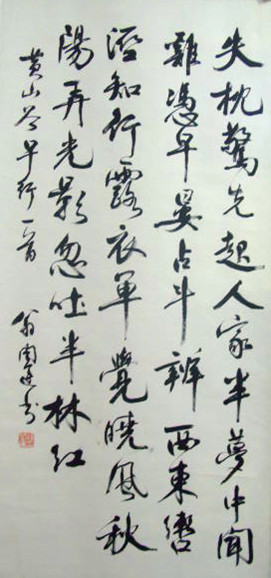 失枕驚先起人家半夢中聞
雞憑早晏占斗辨西東轡
溼知行露衣單覺曉風秋
陽弄光影忽吐半林紅
黃山谷早行一首
翁闓運書